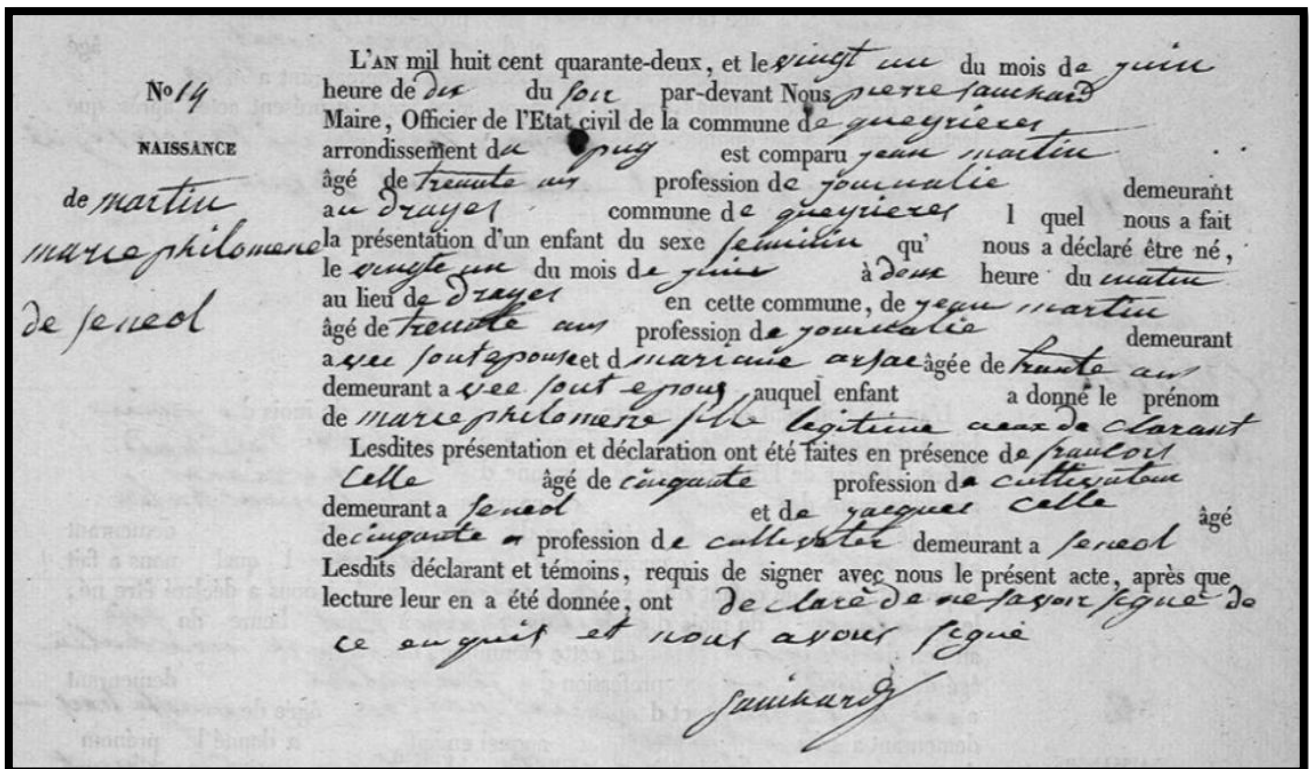 L'AN mil huit cent quarante-deux, et le vingt un du mois de juin
No 14
heure de dix du soir par-devant Nous pierre sauchard
Maire, Officier de l'Etat civil de la commune de queyrieres
NAISSANCE
arrondissement du puy est comparu jean martin
âgé de trente ans profession de journalie demeurant
de martin
au drayes commune de queyrieres l quel nous a fait
marie philomene
la présentation d'un enfant du sexe feminin qu' nous a déclaré être né,
le vingte un du mois de juin à deux heure du matin
au lieu de drayes en cette commune, de jean martin
de seneol
âgé de trente ans profession de journalie demeurant
avec sont epouse et d mariane arsac âgée de trente ans
demeurant a vec sont epoux auquel enfant a donné le prénom
de marie philomene fille legitime aeux de clarant
Lesdites présentation et déclaration ont été faites en présence de francois
Celle âgé de cinqante profession de cultivateur
demeurant a seneol et de jacques celle âgé
de cinqante profession de cultivater demeurant a seneol
Lesdits déclarant et témoins, requis de signer avec nous le présent acte, après que
lecture leur en a été donnée, ont de claré de ne savoir signe de
ce enquis et nous avons signé
sauchard